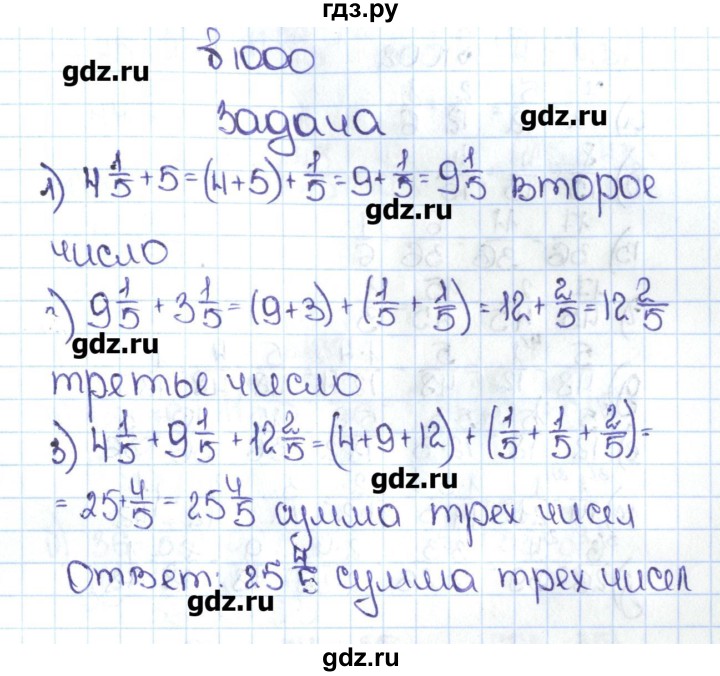 гдз.ру
№ 1000
gdz.ru
Задача
gdz.ru
1) 4 1/5 + 5 = (4+5) + 1/5 = 9 + 1/5 = 9 1/5 второе
gdz.ru
число
2) 9 1/5 + 3 1/5 = (9+3) + (1/5 + 1/5) = 12 + 2/5 = 12 2/5
gdz.ru
третье число
3) 4 1/5 + 9 1/5 + 12 2/5 = (4+9+12) + (1/5 + 1/5 + 2/5) =
gdz.ru
= 25 + 4/5 = 25 4/5 сумма трех чисел
Ответ: 25 4/5 сумма трех чисел
gdz.ru
gdz.ru